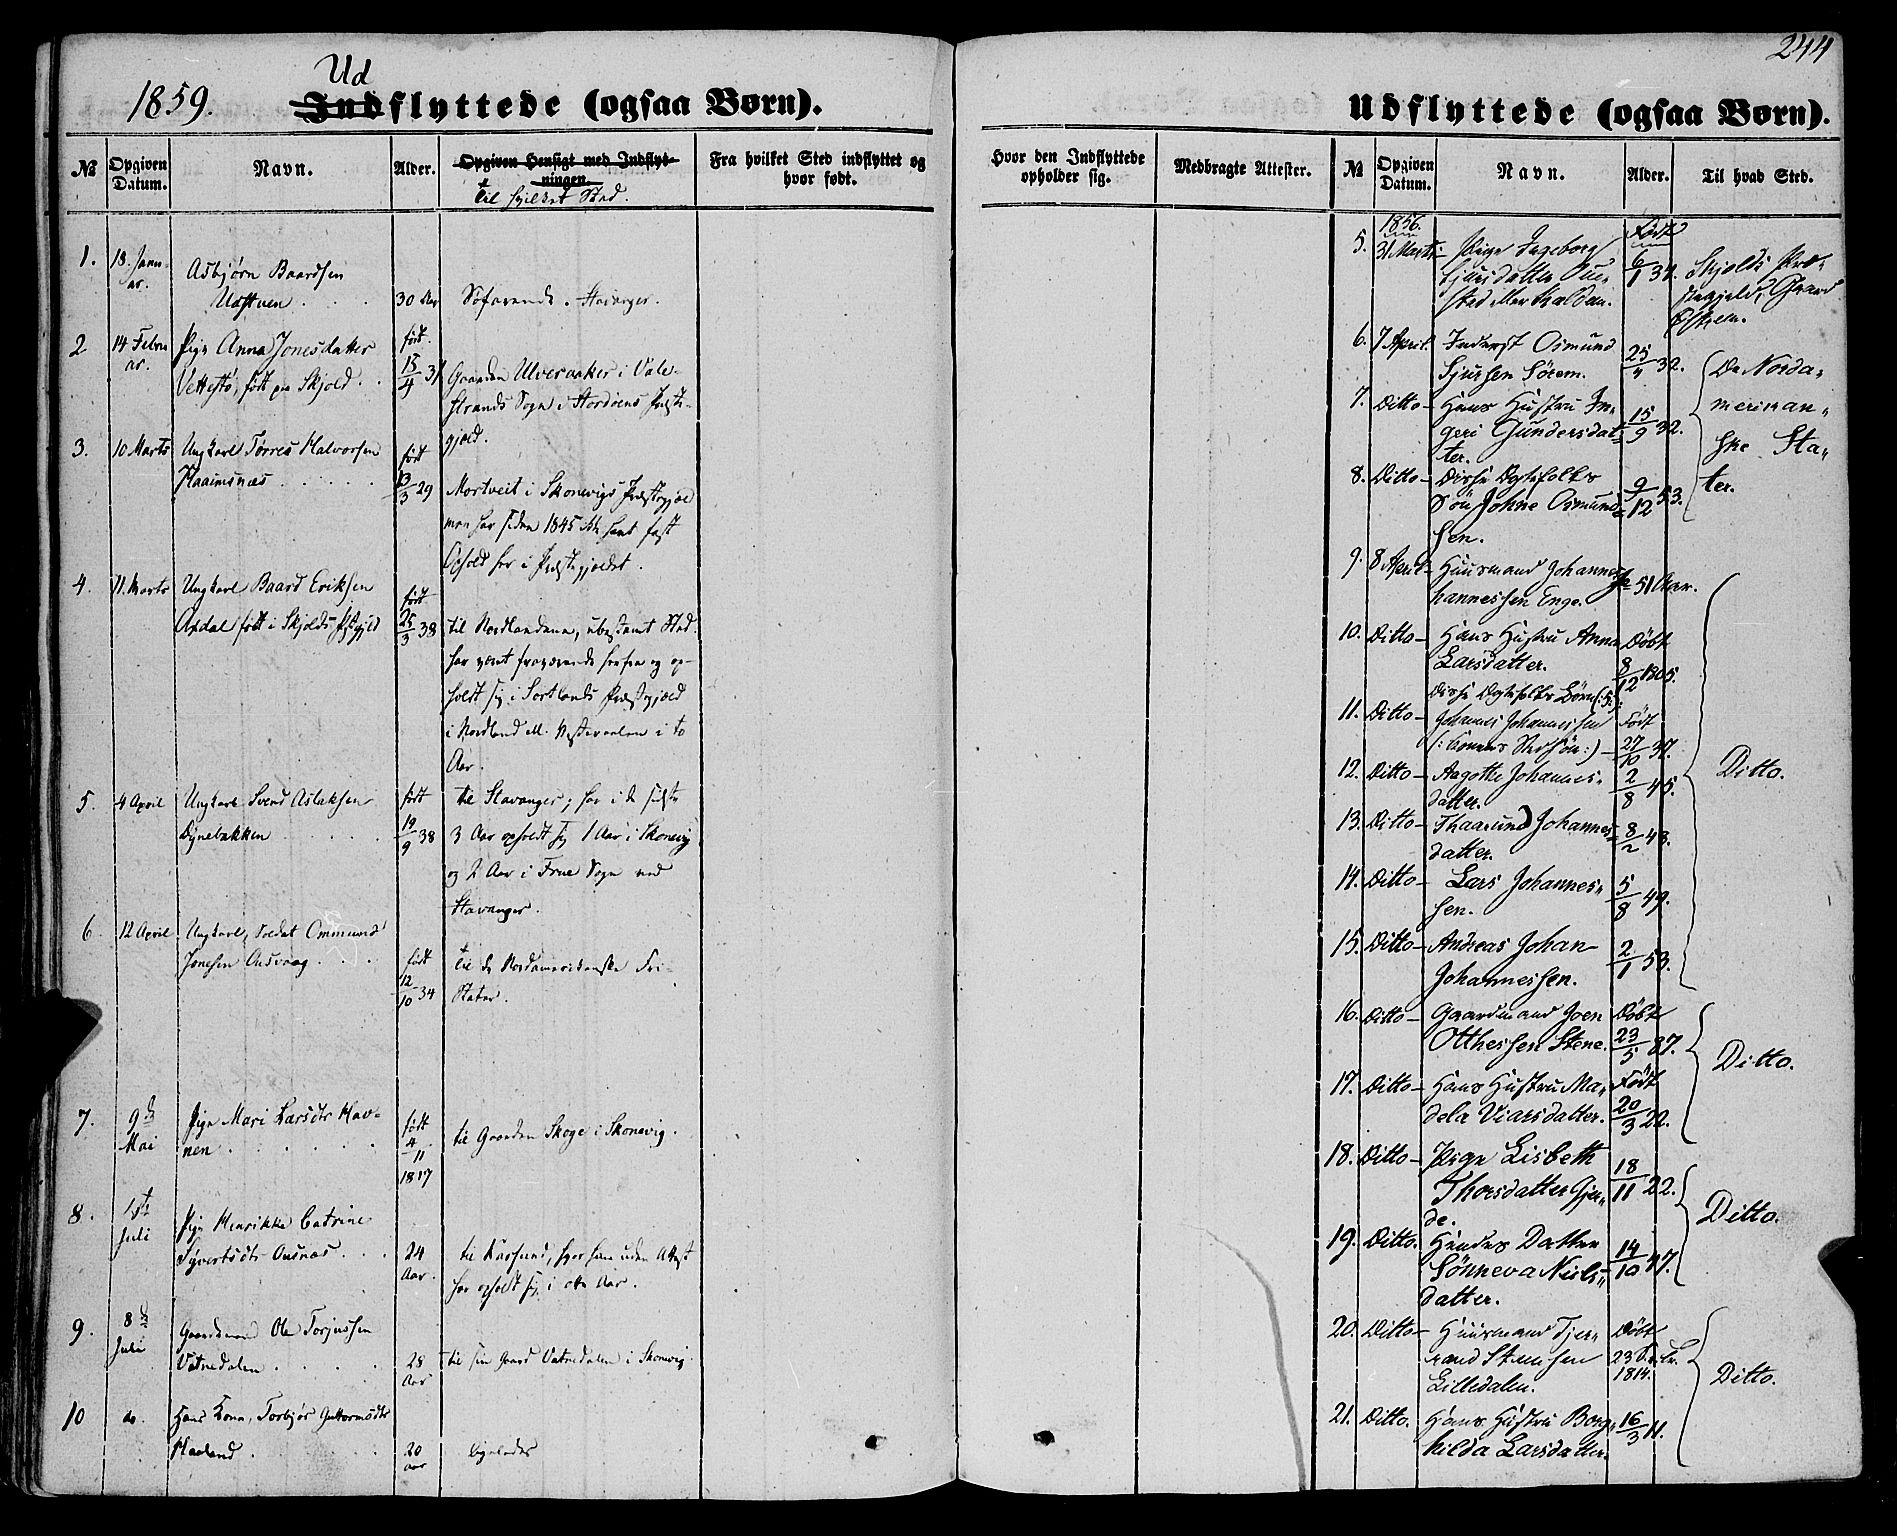 1859.
Ud
Indflyttede (ogsaa Børn).
№
Opgiven Datum.
Navn.
Alder.
Opgiven Hensigt med Indflyt-
ningen
til hvilket Sted.
Fra hvilket Sted indflyttet og
hvor født.
1. 18. Janu-
ar.
Asbjørn Baardsen
30 Aar Søfarende. Stavanger.
2 14 Febru
ar.
Pige Anna Jonesdatter
født 15/4 31
Gaarden Ulveraaker i Vale-
strands Sogn i Stordøens Præste-
gjeld.
3. 10 Marts
Ungkarl Tørres Halvorsen
født 13/3 29
Mortveit i Skonevigs Præstegjeld
men har siden 1845 havt fast
Ophold her i Præstegjeldet.
4. 11. Marts
Ungkarl Baard Eriksen
født i Skjolds Pstgjld
født 25/3 38
til Nordlandene, ubestemt Sted.
har været fraværende herfra og op-
holdt sig i Sortlands Præstegjeld
i Nordland
Aar.
5. 4 April
Ungkarl Svend Aslaksen
Dynebakken
født 19/9 38
til Stavanger; har i de sidste
3 Aar opholdt sig 1 Aar i Skonevig
og 2 Aar i Frue Sogn ved
Stavanger.
6. 12 April
Ungkarl, Soldat Ommund
Jonesen
født 12/10 34
til de Nordamerikanske Fri-
Stater.
7. 9de
Mai
Pige Mari Larsdtr Hav-
nen
født 4/11
1817
til Gaarden Skoge i Skonevig.
8. 1ste
Juli
Pige Henrikke Catrine
Syvertsdtr
24
Aar.
til Karsund, hvor hun uden Attest
har opholdt sig i otte Aar.
9. 8de
Juli
Gaardmand Ole Torjussen
Vatnedalen
28
Aar
til sin Gaard Vatnedalen i Skonevig.
10 do.
Hans Kone, Torbjør Guttormsdtr
Haaland
20
aar
ligeledes
244
Udflyttede (ogsaa Børn).
Hvor den Indflyttede
opholder sig.
Medbragte Attester.
№
Opgiven Datum.
Navn.
Alder.
Til hvad Sted.
1856.
5. 31 Marts Pige Ingeborg
Født 6/1 34.
Skjolds Præ-
stegjeld, Gaard
Ølshem.
6. 7 April. Inderst Osmund
Sjursen Sørem. 25/ 32.
De Norda-
merikan-
ske Sta-
ter.
7. Ditto Hans Hustru In-
geri Gundersdat-
ter. 15/9 32.
8. Ditto Disse Egtefolks
Søn Johne Osmund-
sen. 9/12 53.
9. 8 April Huusmand Johannes Jo-
hannessen Enge. 51 Aar.
Ditto.
10. Ditto Hans Hustru Anna
Larsdatter. Døbt 8/12 1805.
Disse Egtefolks Børn (:5:):
11. Ditto Johannes Johannessen
Født 27/10 37.
12. Ditto Aagothe Johannes-
datter. 2/8 45.
13. Ditto Johannes-
datter. 8/2 48.
14. Ditto Lars Johannes-
sen. 5/8 49.
15. Ditto Andreas Johan
Johannessen. 2/1 53.
16. Ditto Gaardmand Joen
Otthessen Stene. Døbt 23/5 87.
Ditto.
17. Ditto Hans Hustru Ma-
dela Viarsdatter. Født 20/3 22.
18. Ditto Pige Lisbeth
Thorsdatter Gjer-
de. 18/11 22.
Ditto.
19. Ditto. Hendes Datter
Sønneva Niels-
datter. 14/10 47.
20. Ditto Huusmand Tjer-
rand Steensen
Lilledalen. Døbt
23
1814.
Ditto.
21. Ditto. Hans Hustru Borg-
hilda Larsdatter. 16/3 11.